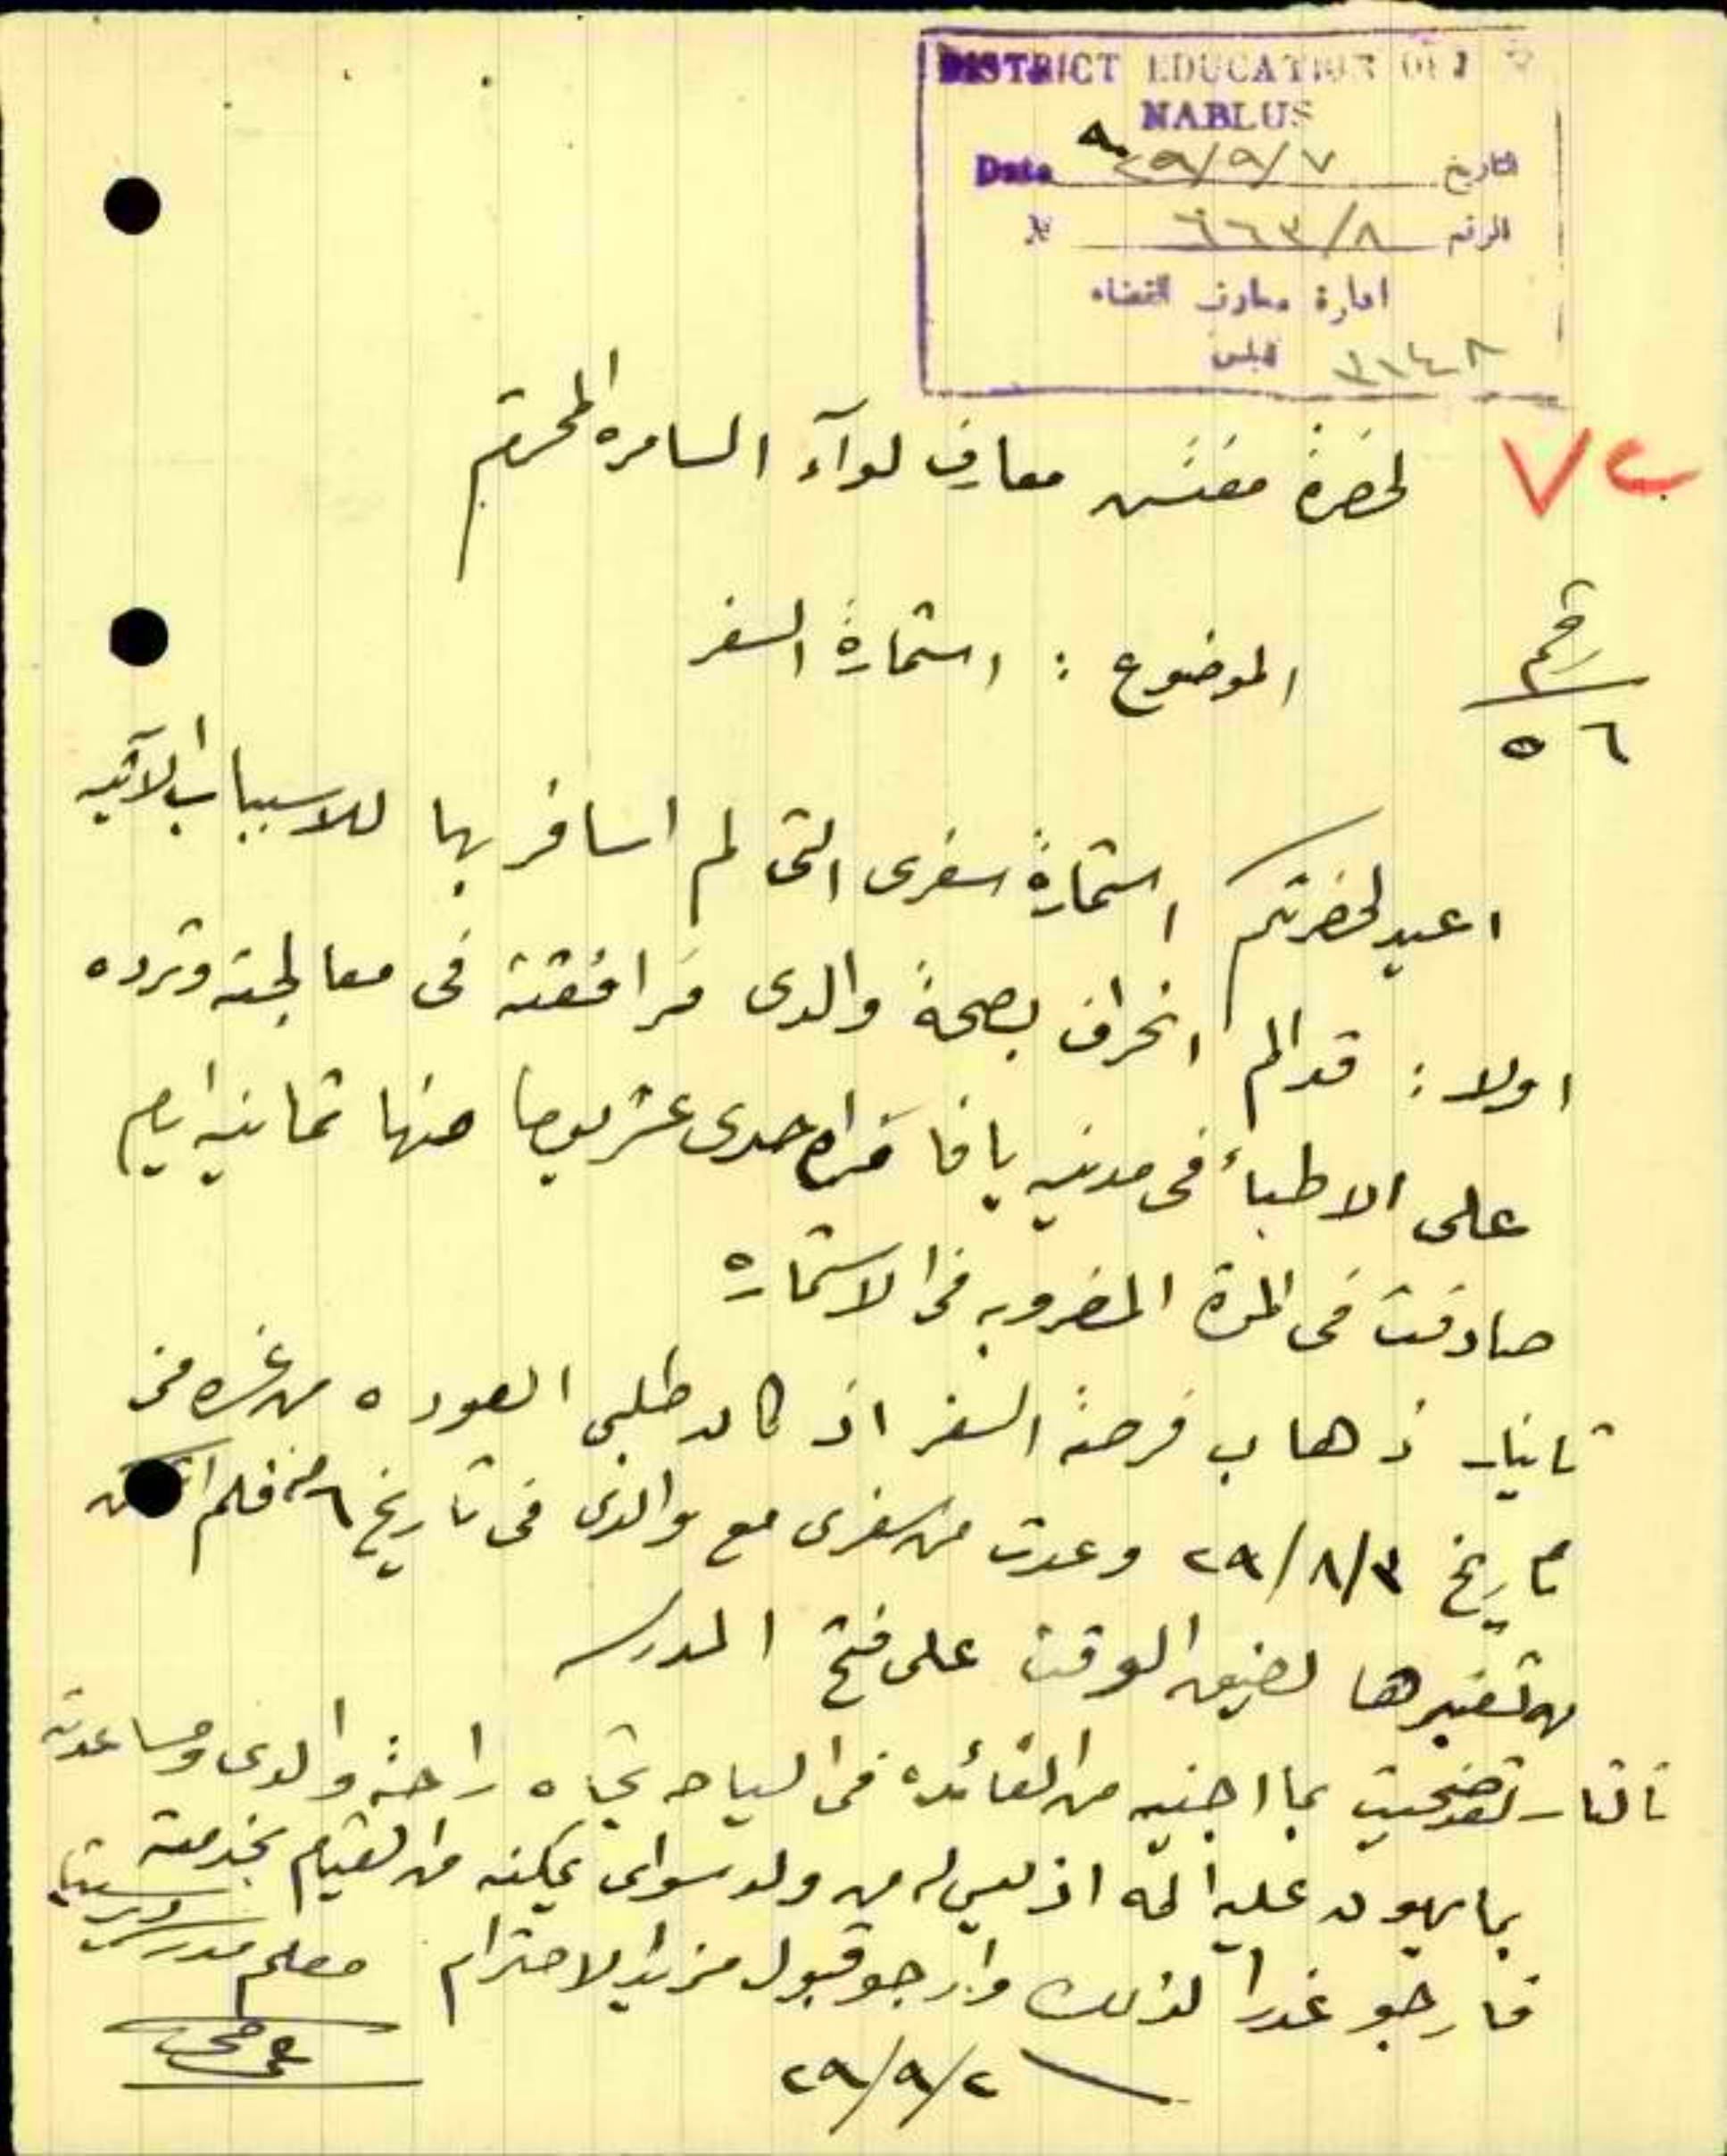 DISTRICT EDUCATION
NABLUS
Date ٢٩/٩/٧ التاريخ
№ ٦٦٣/٨ الرقم
ادارة معارف القضاء
نابلس ٣١٤٨
٧ب
لحضرة مفتش معارف لوآء السامره المحترم
رقم
٥٦
الموضوع : استمارة السفر
اعيد لحضرتكم استمارة سفرى التى لم اسافر بها للاسباب الاتيه
اولا : قد الم انحراف بصحة والدى فرافقته فى معالجته وتردده
على الاطباء فى مدينه يافا مده احدى عشر يوما منها ثمانيه ايام
صادفت فى المدة المضروبه فى الاستماره
ثانيا - ذهاب فرصة السفر اذ كان طلبى العوده من غزه فى
تاريخ ٢٩/٨/٣ وعدت من سفرى مع والدى فى تاريخ ٦ منه فلم
من تغيرها لضيق الوقت على فتح المدرسه
ثالثا - لقد ضحيت بما اجنيه من الفائده فى السياحه تجاه راحة والدى ومساعدته
بما يهون عليه المه اذ ليس له من ولد سواى يمكنه من القيام بخدمته
فارجو عذرا لذلك وارجو قبول مزيد الاحترام معلم مدرسة
٢٩/٩/٢